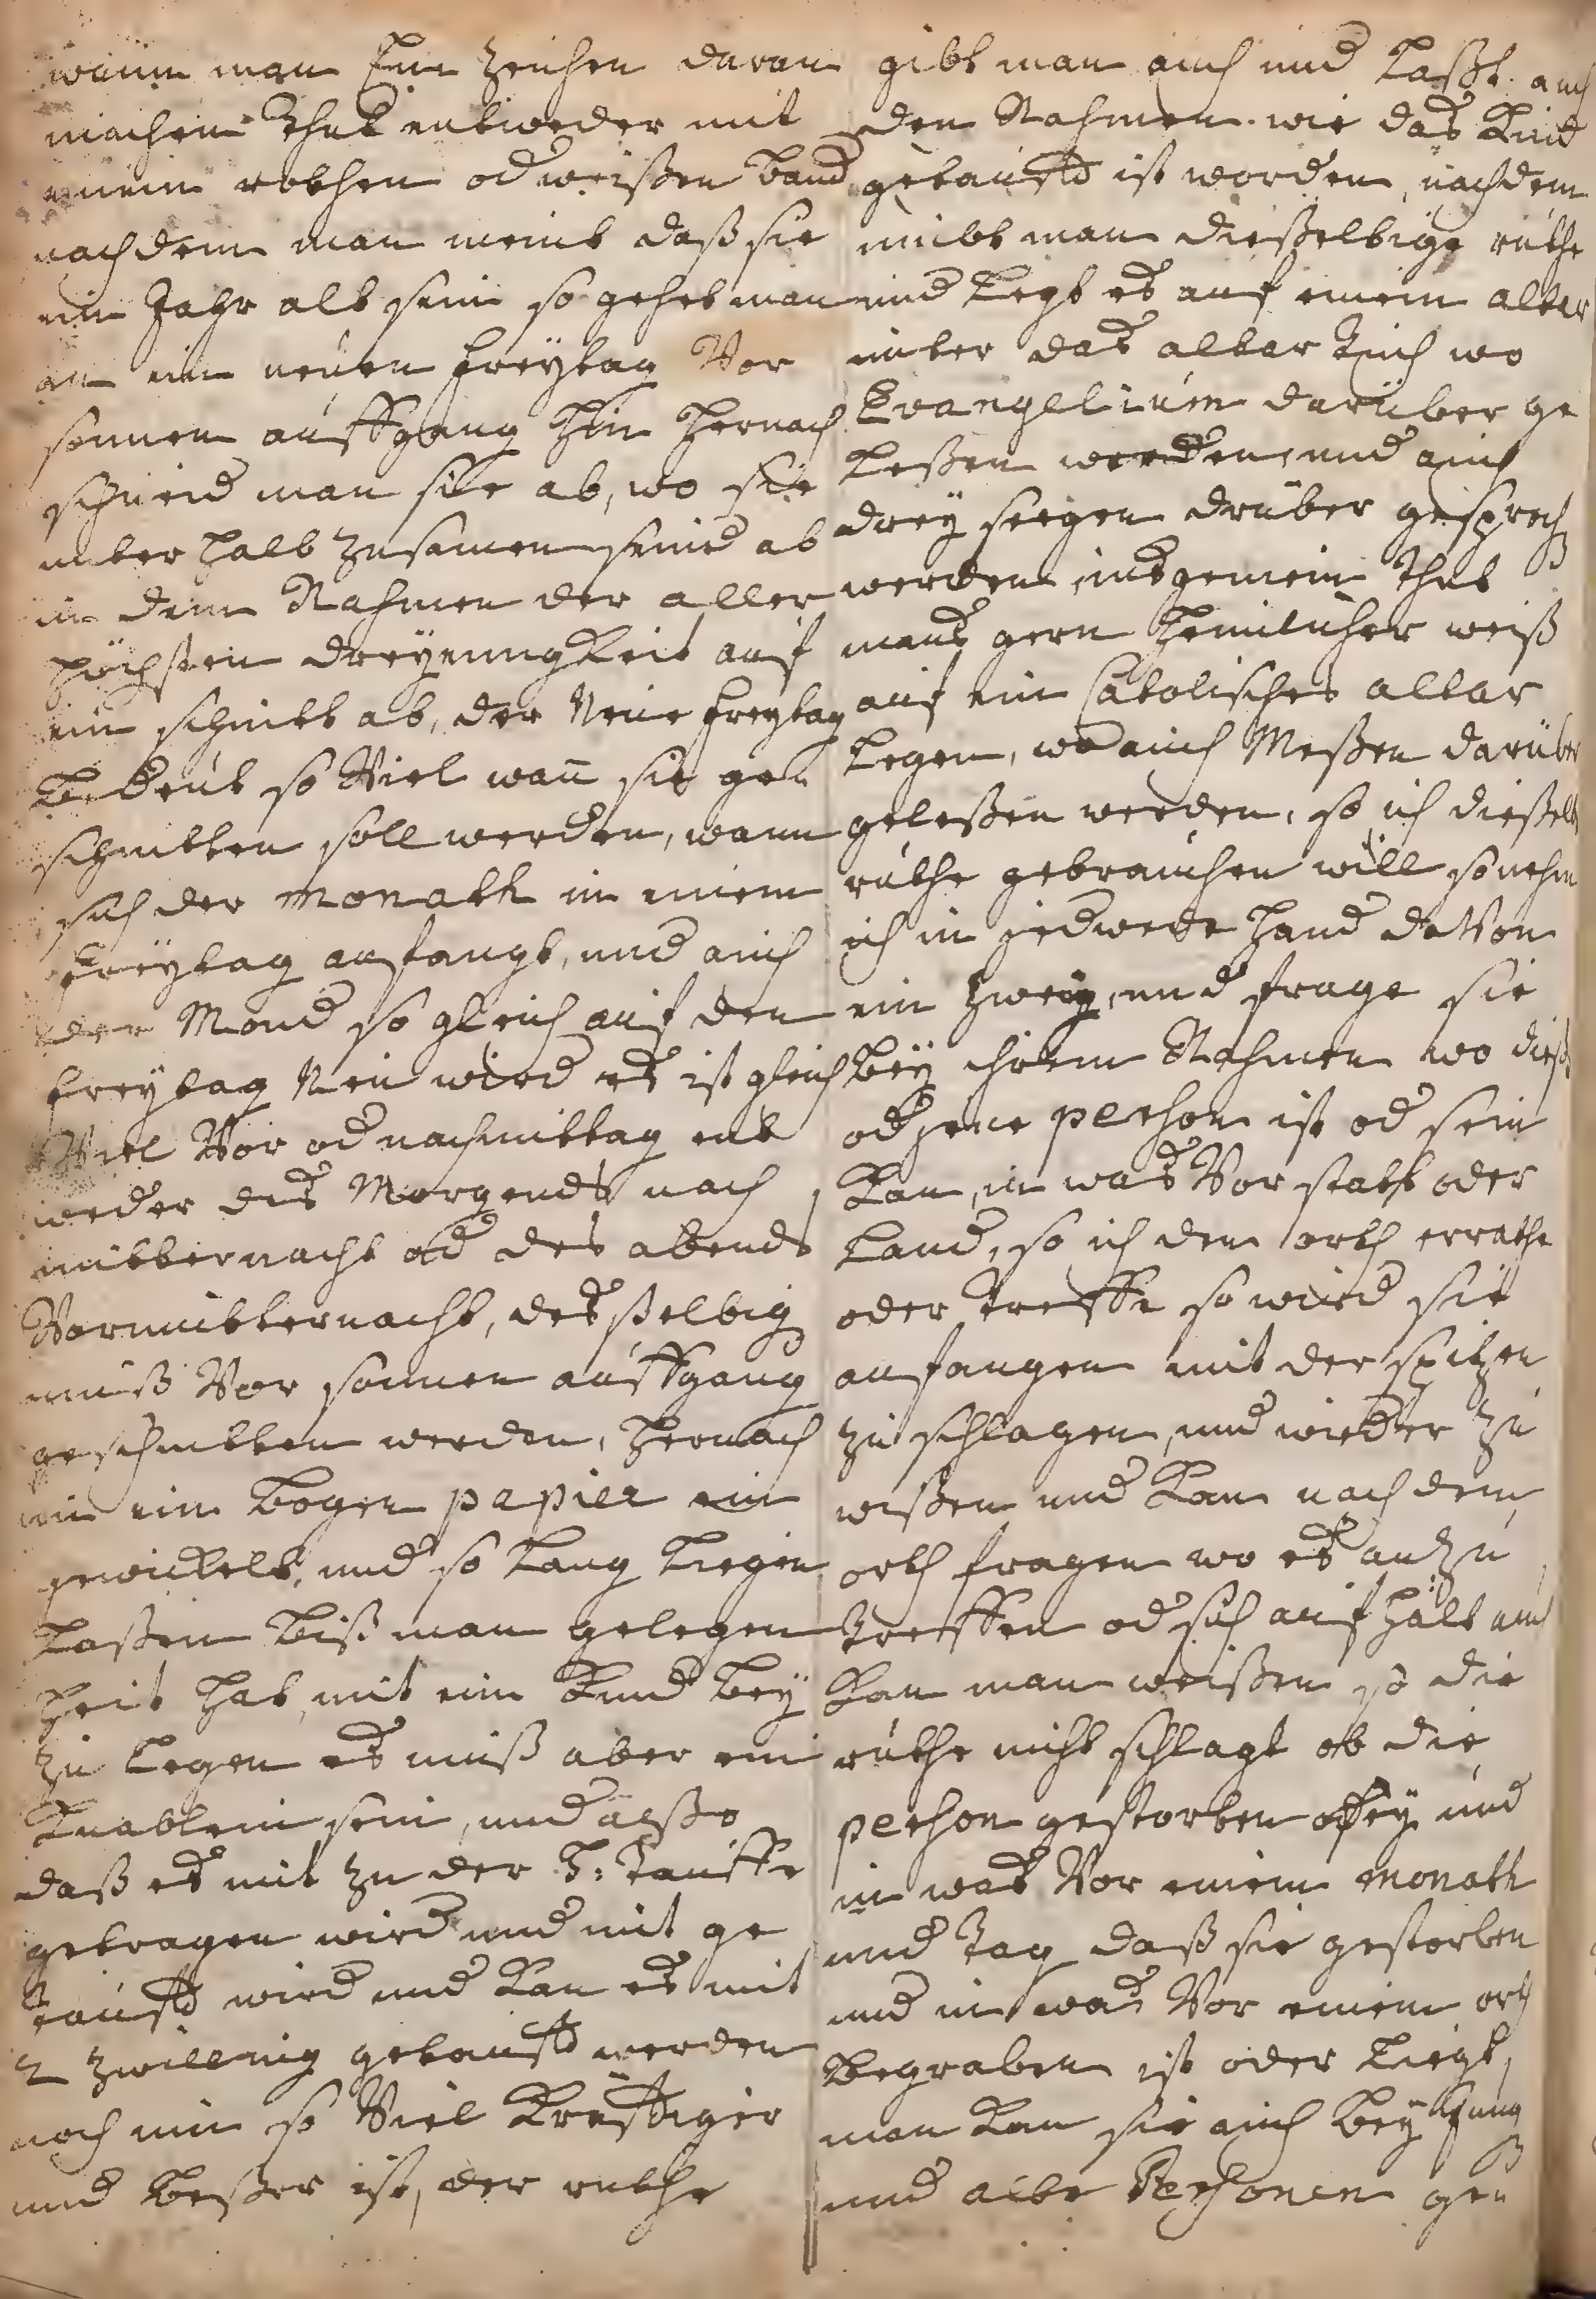 wann man Ein Zeichen daran
machen Thut entweder mit
einem rothen od weißen band
nach dem man meint daß sie
ein Jahr alt sein so gehet man
an ein neuen freÿtag Vor
sonnen auffgang hin hernach
schneid man sie ab, wo sie
unter halb zusamen seind ab
in dem Nahmen der aller
höchsten dreÿeinigkeit auf
ein schnitt ab, der Neue freÿtag
bedeut so Viel wan̄ sie ge
schnitten soll werden, wann
sich der Monath in einem
freÿtag anfangt, und auch
der Mond so gleich auf den
freÿtag Neu wird es ist gleich
Viel Vor od nachmittag ent
weder des Morgends nach
mitternacht od des abends
Vormitternacht, des selbig
muß Vor sonnen auffgang
geschnitten werden, hernach
in ein bogen papier ein
gewickelt, und so lang liegen
laßen biß man gelegen
heit hat, mit ein Kind beÿ
zu legen es muß aber ein
Knablein sein, und alßo
daß es mit zu der H: Tauffe
getragen wird und mit ge
taufft wird und kan es mit
2 zwilling getaufft werden
noch um so Viel kräfftiger
und beßer ist, der ruthe
gibt man auch und laßt auch
den Nahmen wie das Kind
getaufft ist worden, nachdem
nimbt man dießelbige ruthe
und legt es auf einem altar
unter das altar Tuch wo
Evangelium darüber ge
leßen werden, und auch
dreÿ seegen drüber gesproch
werden, insgemein Thut
mans gern heimlicher weiß
auf ein Catolisches altar
legen, wo auch Meßen darüber
geleßen werden, so ich dießelb
ruthe gebrauchen will so nehm
ich in jedwede hand da Von
ein Zweig, und frage sie
beÿ ihrem Nahmen wo dieß
od jene perhon ist od sein
kan, in was Vor statt oder
land, so ich den orth errathe
oder Treffe so wird sie
anfangen mit der spitzen
zu schlagen, und wieder zu
wißen und kan nach dem
orth fragen wo es anzu
Treffen od sich auf hält auch
kan man weißen so die
ruthe nicht schlagt ob die
perhon gestorben seÿ und
in was Vor einem Monath
und Tag daß sie gestorben
und in was Vor einem orth
begraben ist oder liegt,
man kan sie auch beÿ Jung
und alte Perhonen ge